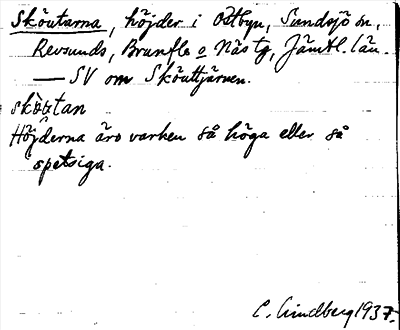 Sköutarna, höjder i Östbyn, Sundsjö sn,
Revsunds, Brunflo o Näs tg, Jämtl. län.
— SV om Sköuttjärnen.
sköutan
Höjderna äro varken så höga eller så
spetsiga.
C. Lindberg 1937.